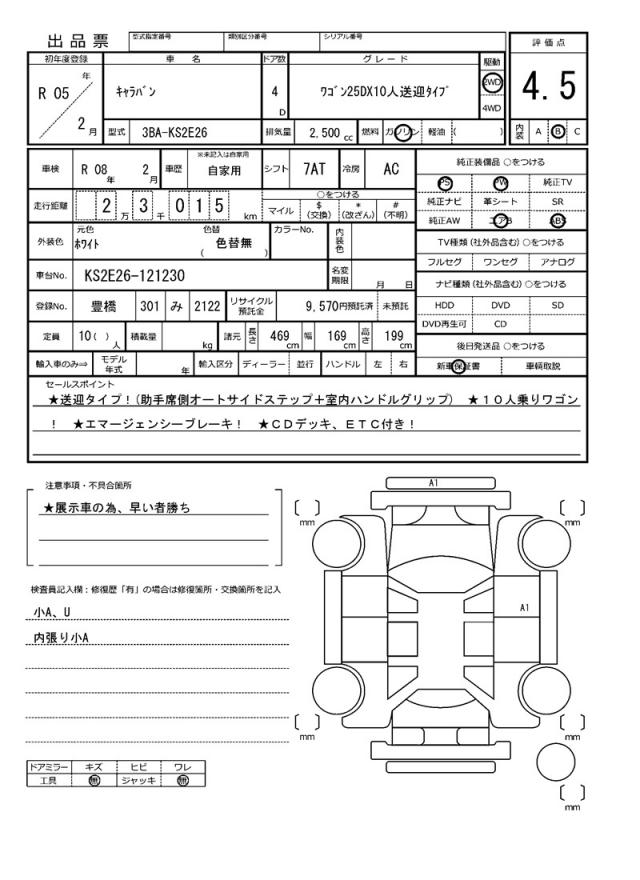 出品票
型式指定番号 類別区分番号 シリアル番号
評価点
4.5
内装 A B C
初年度登録 車名 ドア数 グレード 駆動
R 05 年 2 月
キャラバン
4 D
ワゴン25DX10人送迎タイプ
2WD
4WD
型式 3BA-KS2E26 排気量 2,500 cc 燃料 ガソリン 軽油 ( )
車検 R 08 年 2 月 車歴 ※未記入は自家用 自家用 シフト 7AT 冷房 AC
走行距離 2 万 3 千 0 1 5 km
○をつける
マイル $ (交換) * (改ざん) # (不明)
外装色 元色 ホワイト 色替 色替無 ( ) カラーNo. 内装色
車台No. KS2E26-121230 名変期限 月 日
登録No. 豊橋 301 み 2122 リサイクル預託金 9,570円預託済 未預託
定員 10( )人 積載量 kg 諸元 長さ 469 cm 幅 169 cm 高さ 199 cm
輸入車のみ⇒ モデル年式 年 輸入区分 ディーラー 並行 ハンドル 左 右
純正装備品 ○をつける
PS PW 純正TV
純正ナビ 革シート SR
純正AW エアB ABS
TV種類(社外品含む)○をつける
フルセグ ワンセグ アナログ
ナビ種類(社外品含む)○をつける
HDD DVD SD
DVD再生可 CD
後日発送品 ○をつける
新車保証書 車輌取説
セールスポイント
★送迎タイプ!(助手席側オートサイドステップ+室内ハンドルグリップ) ★10人乗りワゴン
! ★エマージェンシーブレーキ! ★CDデッキ、ETC付き!
注意事項・不具合箇所
★展示車の為、早い者勝ち
検査員記入欄:修復歴「有」の場合は修復箇所・交換箇所を記入
小A、U
内張り小A
ドアミラー キズ ヒビ ワレ
工具 無 ジャッキ 無
A1
mm
mm
A1
mm
mm
mm